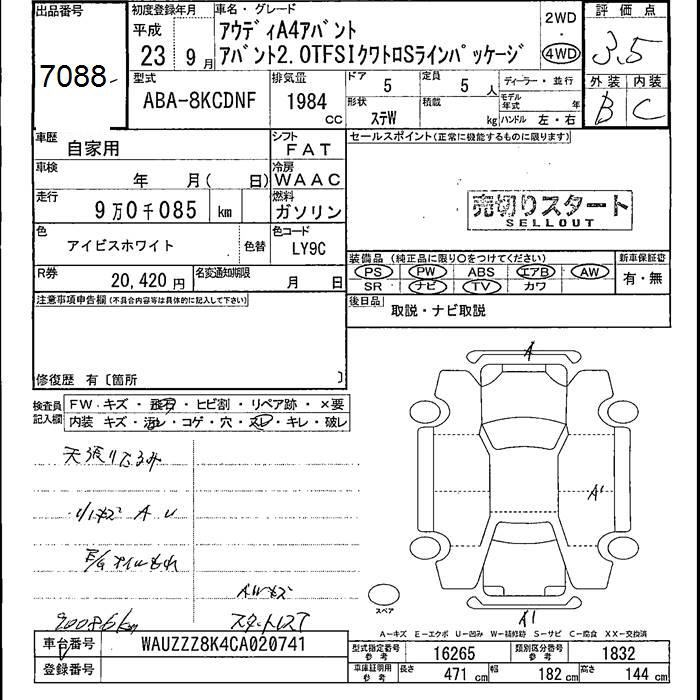 出品番号
7088
初度登録年月
平成
23 9 月
車名・グレード
アウディA4アバント
アバント2.0TFSIクワトロSラインパッケージ
2WD
・
4WD
評価点
3.5
外装 内装
B C
型式
ABA-8KCDNF
排気量
1984
CC
ドア
5
定員
5 人
形状
ステW
積載
kg
ディーラー・並行
モデル年式 年
ハンドル 左・右
車歴
自家用
シフト
FAT
車検
年 月( 日)
冷房
WAAC
走行
9万0千085 km
燃料
ガソリン
色
アイビスホワイト
色替
色コード
LY9C
R券
20,420円
名変通知期限
月 日
セールスポイント(正常に機能するものに限ります)
売切りスタート
SELLOUT
装備品(純正品に限り○をつけてください)
PS PW ABS エアB AW
SR ナビ TV カワ
新車保証書
有・無
後日品
取説・ナビ取説
注意事項申告欄(不具合内容等は具体的に記入して下さい)
修復歴 有〔箇所 〕
検査員記入欄
FW キズ・飛石・ヒビ割・リペア跡・×要
内装 キズ・汚レ・コゲ・穴・スレ・キレ・破レ
天張りたるみ
A U
E/G オイルもれ
AWキズ
スタットレスT
90086km
A
A1
スペア
A1
A-キズ E-エクボ U-凹み W-補修跡 S-サビ C-腐食 XX-交換済
車台番号
WAUZZZ8K4CA020741
登録番号
型式指定番号
参考
16265
類別区分番号
参考
1832
車庫証明用
参考
長さ 471 cm 幅 182 cm 高さ 144 cm